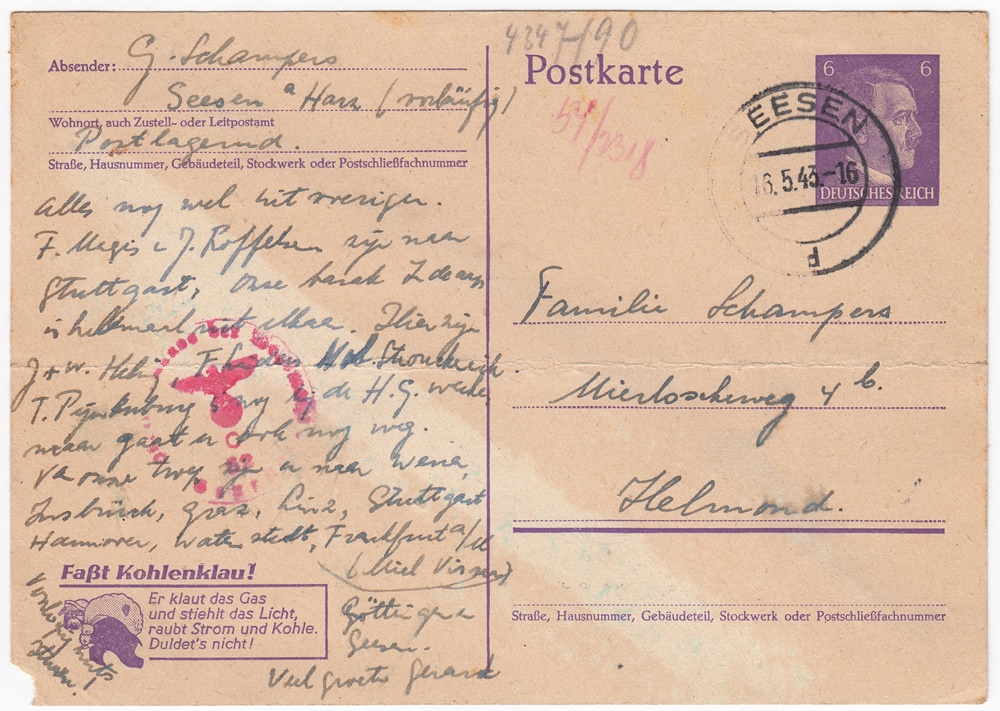 4347/90
Absender: G. Schampers
Seesen a Harz (vorläufig)
Wohnort, auch Zustell- oder Leitpostamt
Postlagernd.
Straße, Hausnummer, Gebäudeteil, Stockwerk oder Postschließfachnummer
Alles nog wel
F. Megis J. Roffelsen zijn naar
Stuttgart, Onze barak
is helemaal uit elkaar. Hier zijn
J + W. F.
T. nog bij de H.G.
maar gaat er ook nog weg.
Van onze zijn er naar Wenen,
Insbrück, Graz, Linz, Stuttgart
Hannover, Watenstedt, Frankfurt a/M
(Miel Vissers)
Göttingen
Seesen.
Veel groeten Gerard
Vorläufig niets
sturen!
Faßt Kohlenklau!
Er klaut das Gas
und stiehlt das Licht,
raubt Strom und Kohle.
Duldet's nicht!
Postkarte
54/
6 6
DEUTSCHES REICH
SEESEN
16.5.43.-16
d
Familie Schampers
Mierloscheweg 4 b.
Helmond.
Straße, Hausnummer, Gebäudeteil, Stockwerk oder Postschließfachnummer